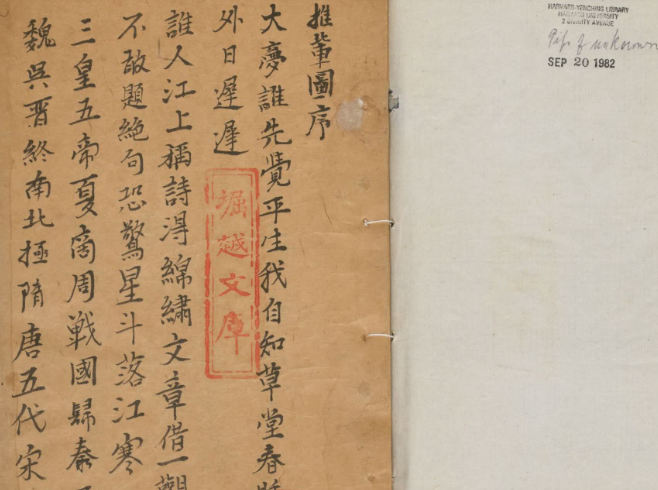 推軰圖序
大夣誰先覺平生我自知草堂春
外日遲遲
誰人江上稱詩淂綿繡文章借一觀
不敢題絶句恐驚星斗落江寒
三皇五帝夏商周戰國歸秦
魏吳晋終南北極隋唐五代宋
堀越文庫
HARVARD-YENCHING LIBRARY
HARVARD UNIVERSITY
2 DIVINITY AVENUE
Gift of unknown
SEP 20 1982